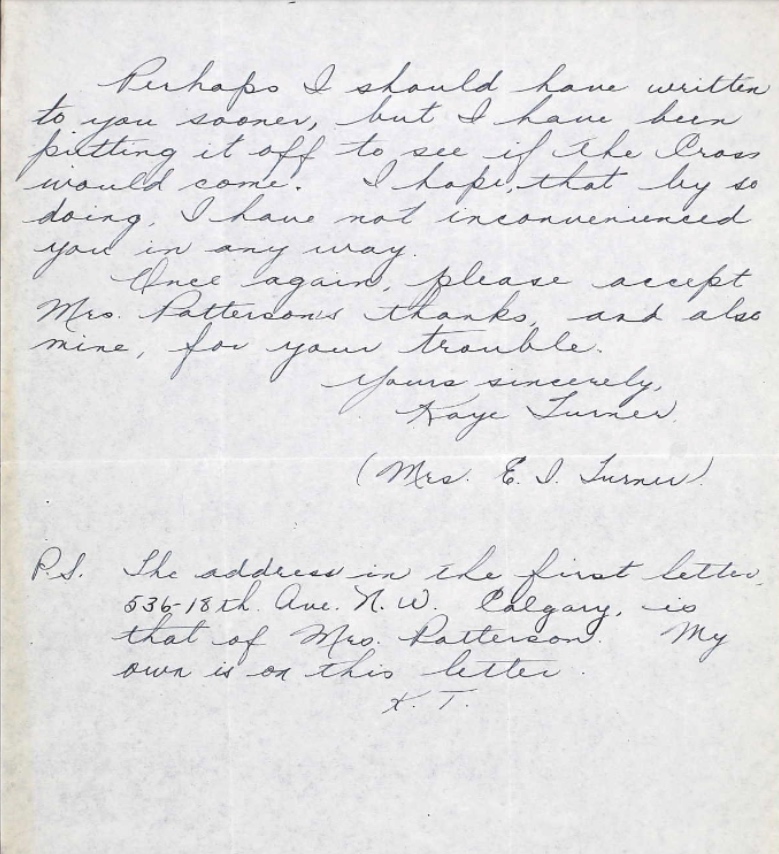 Perhaps I should have written
to you sooner, but I have been
putting it off to see if the Cross
would come. I hope, that by so
doing, I have not inconvenienced
you in any way.
Once again, please accept
Mrs. Patterson's thanks, and also
mine, for your trouble.
Yours sincerely,
Kaye Turner.
(Mrs. E. I. Turner).
P.S. The address in the first letter,
536-18th. Ave. N. W. Calgary, is
that of Mrs. Patterson. My
own is on this letter.
K. T.